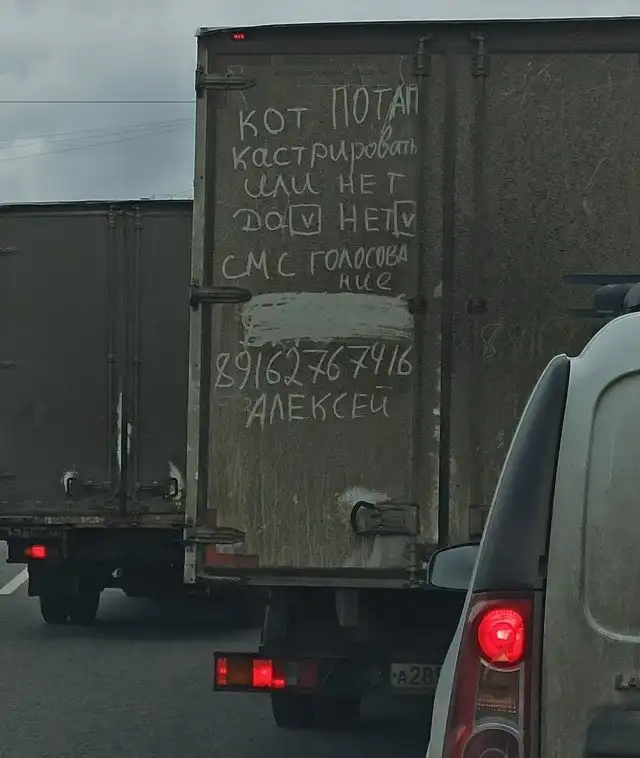 КОТ ПОТАП
кастрировать
или НЕТ
Да V НЕТ V
СМС ГОЛОСОВА
НИЕ
89162767416
АЛЕКСЕЙ